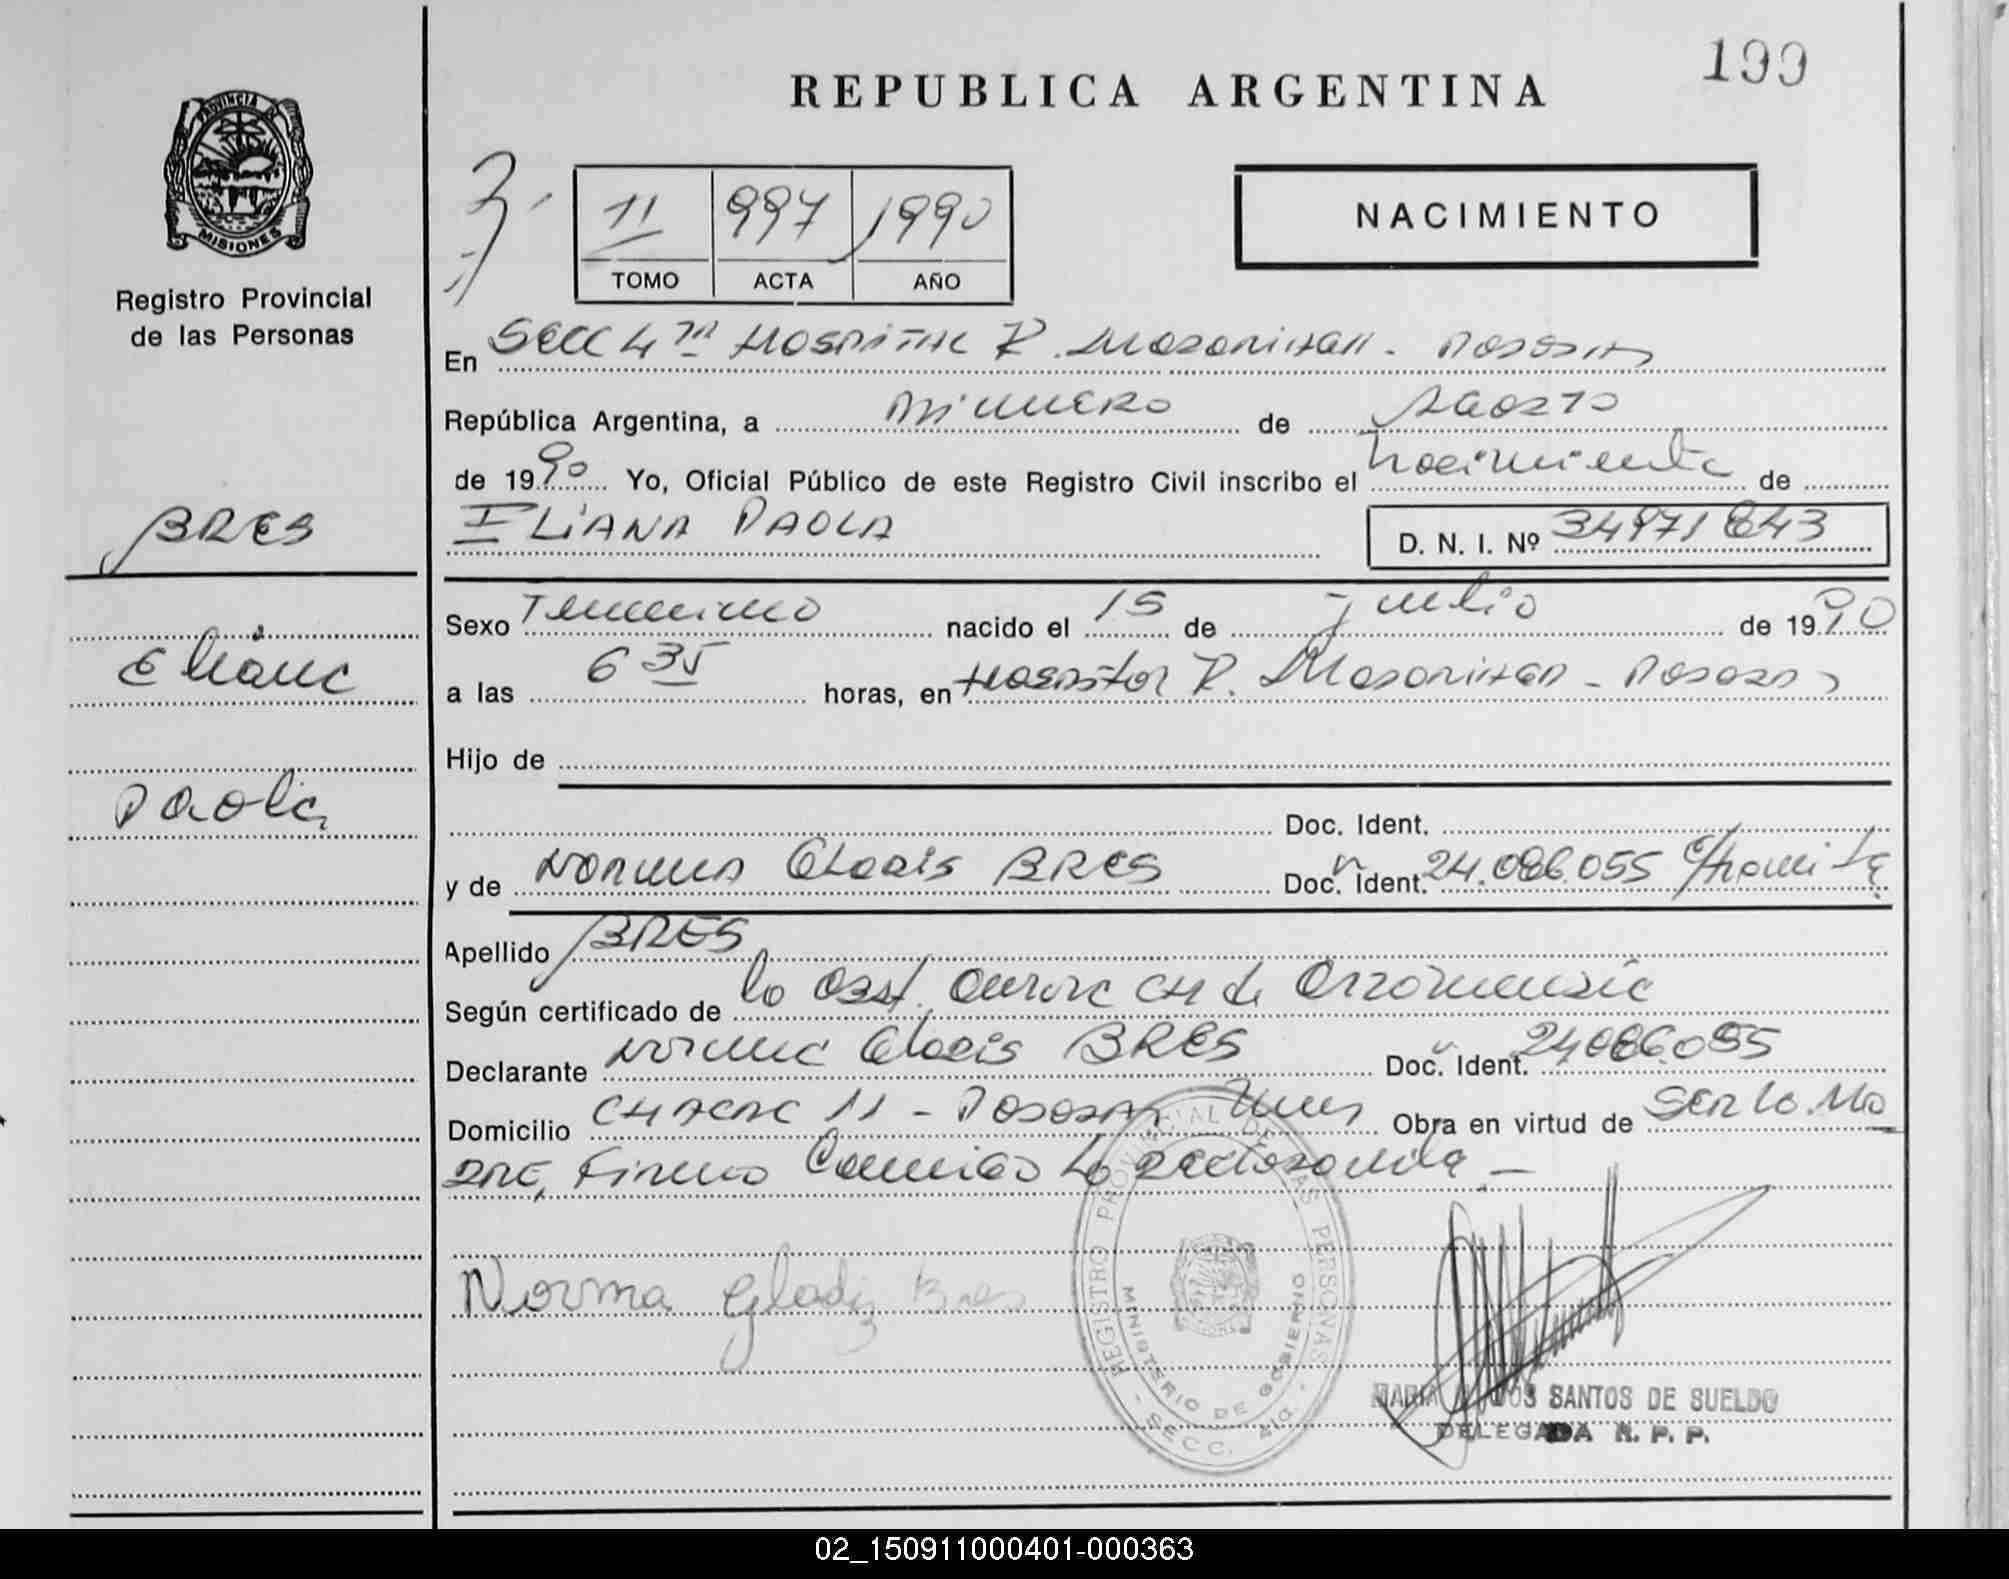 199
REPUBLICA ARGENTINA
PROVINCIA DE
MISIONES
Registro Provincial
de las Personas
11 997 1990
TOMO ACTA AÑO
NACIMIENTO
En Secc 4ta Hospital R. Madariaga - Posadas
República Argentina, a primero de Agosto
de 1990 Yo, Oficial Público de este Registro Civil inscribo el nacimiento de
ELIANA PAOLA D. N. I. Nº 34971843
BRES
Eliana
Paola
Sexo Femenino nacido el 15 de julio de 1990
a las 6 35 horas, en Hospital R. Madariaga - Posadas
Hijo de
Doc. Ident.
y de Norma Gladis BRES Doc. Ident. 24.086.055
Apellido BRES
Según certificado de la Obst.
Declarante Norma Gladis BRES Doc. Ident. 24.086.055
Domicilio Chacra 11 - Posadas Obra en virtud de Ser la Ma
dre, Firma Conmigo la
Norma Gladiz Bres
REGISTRO PROVINCIAL DE LAS PERSONAS
MINISTERIO DE GOBIERNO
SECC.
MARIA DOS SANTOS DE SUELDO
DELEGADA R. P. P.
02_150911000401-000363